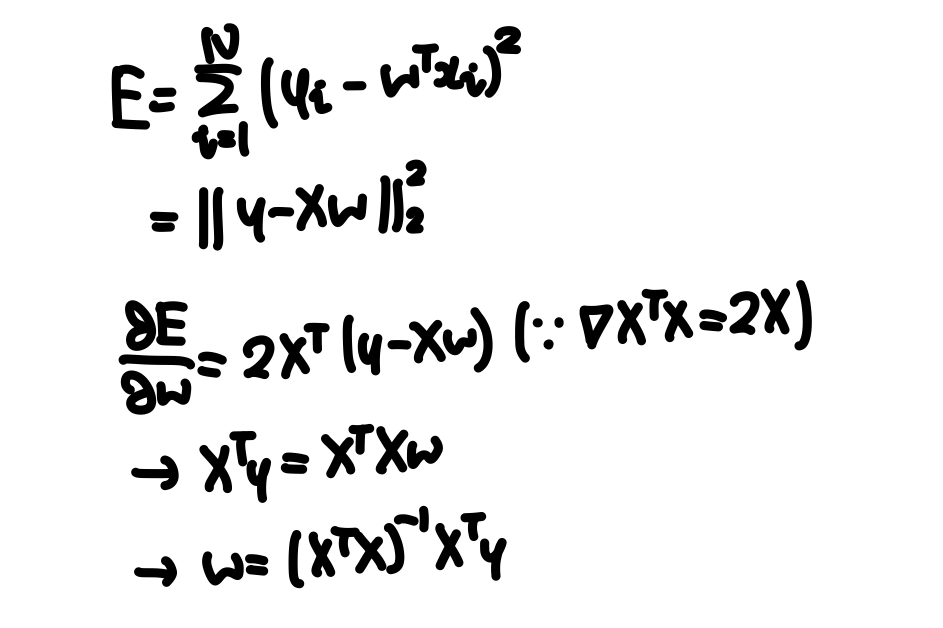 E = \sum_{i=1}^{N} (y_i - w^T x_i)^2
= || y - Xw ||_2^2
\frac{∂E}{∂w} = 2X^T (y - Xw) (∵ ∇X^T X = 2X)
→ X^T y = X^T X w
→ w = (X^T X)^{-1} X^T y